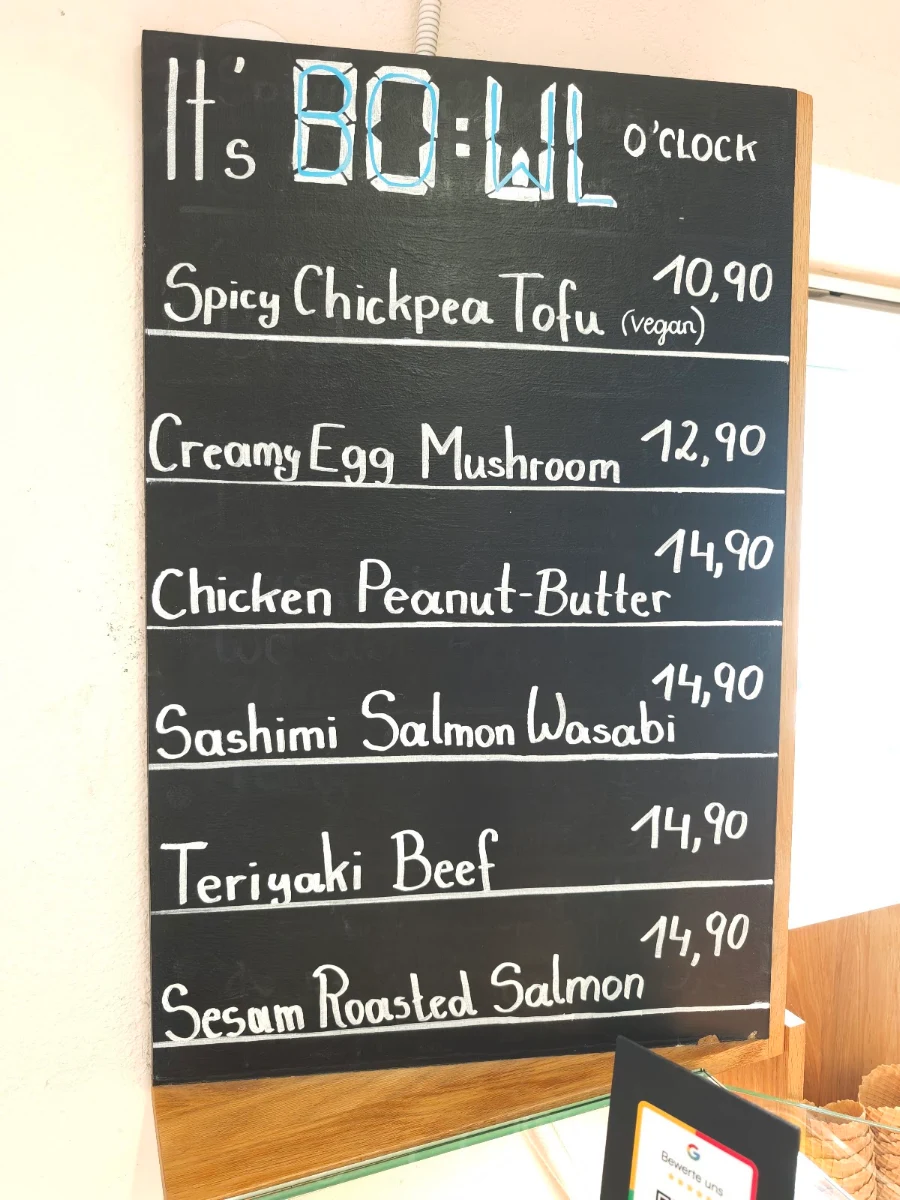 It's BO:WL O'CLOCK
Spicy Chickpea Tofu (vegan) 10,90
Creamy Egg Mushroom 12,90
Chicken Peanut-Butter 14,90
Sashimi Salmon Wasabi 14,90
Teriyaki Beef 14,90
Sesam Roasted Salmon 14,90
G
Bewerte uns